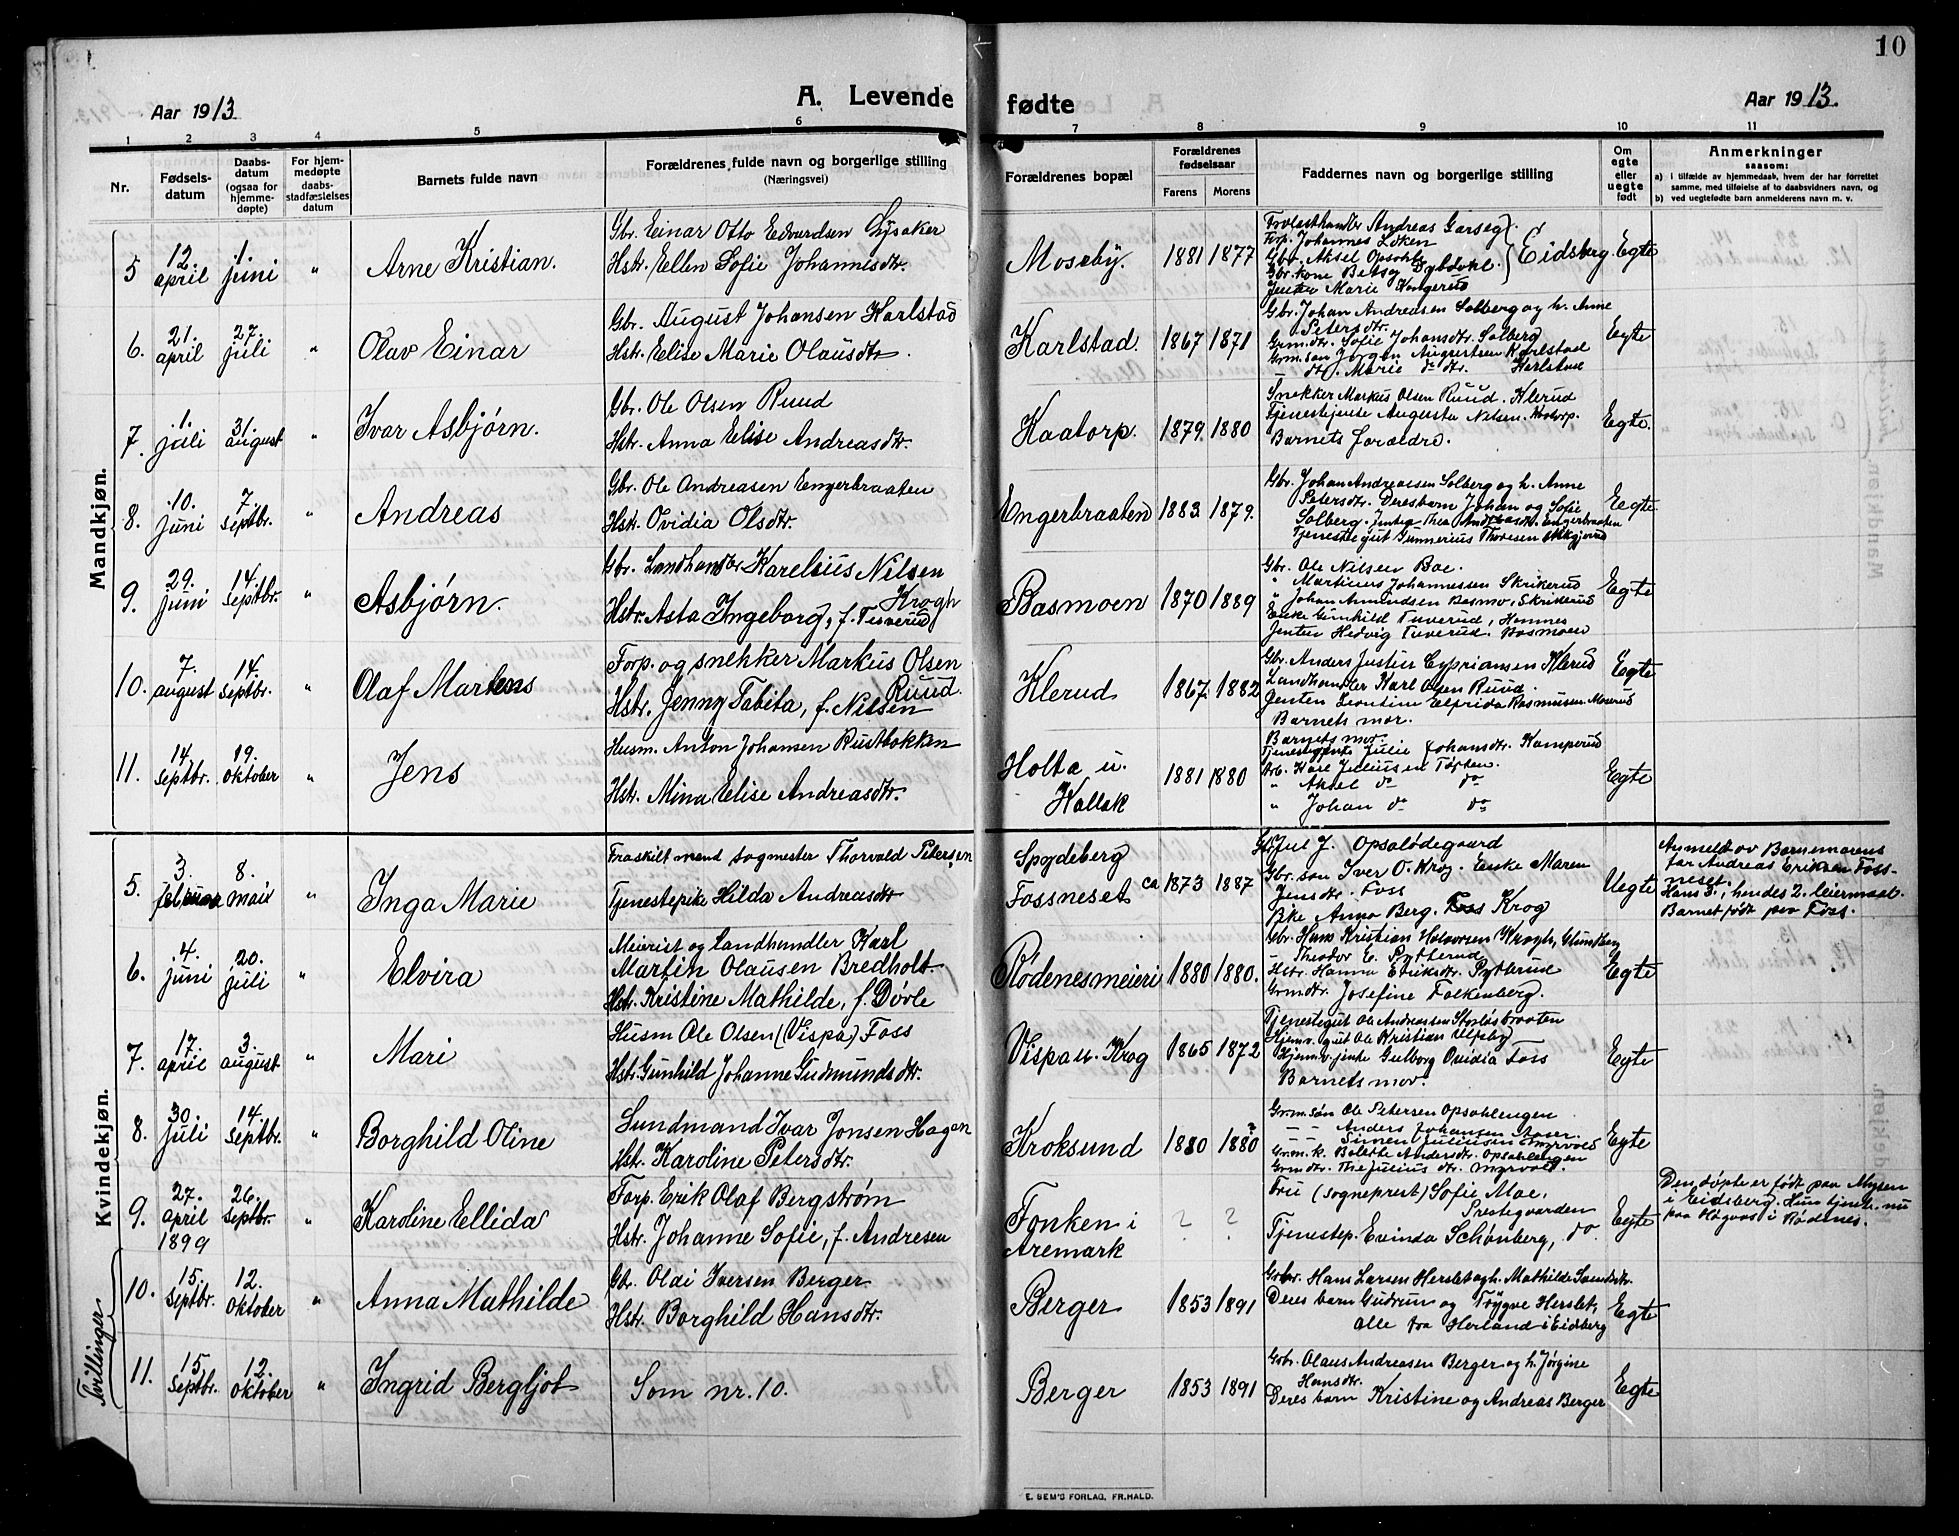 10
Aar 1913.
A. Levende fødte
Aar 1913.
1 2 3 4 5 6 7 8 9 10 11
Nr.
Fødsels-
datum
Daabs-
datum
(ogsaa for
hjemme-
døpte)
For hjem-
medøpte
daabs-
stadfæstelses
datum
Barnets fulde navn
Forældrenes fulde navn og borgerlige stilling
(Næringsvei)
Forældrenes bopæl
Forældrenes
fødselsaar
Farens Morens
Faddernes navn og borgerlige stilling
Om
egte
eller
uegte
født
Anmerkninger
saasom:
a) i tilfælde av hjemmedaab, hvem der har forrettet
samme, med tilføielse af to daabsvidners navn, og
b) ved uegtefødte barn anmelderens navn m. v.
Mandkjøn.
5 12. april 1. juni " Arne Kristian.
Gbr. Einar Otto Edvardsen Lysaker
Hstr. Ellen Sofie Johannisdtr.
Moseby. 1881 1877
Andreas Garseg
Forp. Johannes Løken
Gbr. Aksel Opsahl
Gbr. kone Betsy
Jenten Marie
Eidsberg. Egte
6. 21. april 27. juli " Olav Einar
Gbr. August Johansen Karlstad
Hstr. Elise Marie Olausdtr.
Karlstad. 1867 1871
Gbr. Johan Andreasen Solberg og h. Anne
Petersdtr.
Grm.dtr. Sofie Johansdtr. Solberg
Grm. søn Jørgen Augustsen Karlstad
dtr. Marie do dtr. Karlstad
Egte
7. 1. juli 31. august " Ivar Asbjørn.
Gbr. Ole Olsen Ruud
Hstr. Anna Elise Andreasdtr.
Kaatorp. 1879. 1880
Snekker Markus Olsen Ruud. Klerud
Tjenestejente Augusta Nilsen. Kaatorp.
Barnets forældre.
Egte.
8. 10. juni 7. septbr. " Andreas
Gbr. Ole Andreasen Engerbraaten
Hstr. Ovidia Olsdtr.
Engerbraaten 1883 1879.
Gbr. Johan Andreasen Solberg og h. Anne
Petersdtr. Deres barn Johan og Sofie
Solberg. Jenten Thea Andreasdtr. Engerbraaten
Tjenestegut Gunnerius Thoresen
Egte
9. 29. juni 14. septbr. " Asbjørn.
Gbr. Landhandler Karelius Nilsen
Krogh
Hstr. Asta Ingeborg, f. Tuverud
Basmoen 1870 1889
Gbr. Ole Nilsen Boe.
" Martinius Johannessen Skrikerud
" Johan Amundsen Basmo, Skrikerud
Enke Gunhild Tuverud, Hemnes
Jenten Hedvig Tuverud. Basmoen
Egte
10. 7. august 14. septbr. " Olaf Martens
Forp. og snekker Markus Olsen
Ruud.
Hstr. Jenny Tabita, f. Nilsen
Klerud 1867 1882
Gbr. Anders Justin Cypriansen Klerud
Landhandler Karl Olsen Ruud.
Jenten Leontine Elfrida Rasmussen. Moserud
Barnets mor.
Egte
11. 14. septbr. 19. oktober " Jens
Husm. Anton Johansen Rustbakken
Hstr. Mina Elise Andreasdtr.
Holta u.
Kallak
1881 1880
Barnets mor.
Tjenestejente Julie Johansdtr. Kamperud
Arb. Karl Juliussen Toften.
" Aksel do do
" Johan do do
Egte
Kvindekjøn.
5. 3. februar 8. mai " Inga Marie
Fraskilt mand sagmester Thorvald Petersen
Tjenestepike Hilda Andreasdtr
Spydeberg
Fossneset
ca 1873 1887
Gbr. Jul J. Opsalødegaard
Gbr. søn Iver O. Krog. Enke Maren
Jensdtr. Foss
Pike Anna Berg. Foss Krog
Uegte
Anmeldt av Barnemorens
far Andreas Eriksen Foss-
neset.
Hans 3., hendes 2. leiermaal.
Barnet født paa Foss.
6. 4. juni 20. juli " Elvira
Meierist og landhandler Karl
Martin Olausen Bredholt
Hstr. Kristine Mathilde, f. Døvle
Rødenesmeieri 1880 1880.
Gbr. Hans Kristian Halvorsen Krogh, Glundberg
" Theodor E. Pytterud
Hstr. Hanna Eriksdtr. Pytterud
Grm.dtr. Josefine Falkenberg.
Egte
7. 17. april 3. august " Mari
Husm Ole Olsen (Vispa) Foss
Hstr. Gunhild Johanne Gudmundsdtr.
Vispa u. Krog 1865 1872
Tjenestegut Ole Andreassen
Hjemv. gut Ole Kristian Ulfsby
Hjemv. jente Gulborg Ovidia Foss
Barnets mor.
Egte
8. 30. juli 14 septbr. " Borghild Oline
Sundmand Ivar Jonsen Hagen
Hstr. Karoline Petersdtr.
Kroksund 1880 1880 ?
Gr.m. søn Ole Petersen Opsahlengen
- - Anders Johansen Aaser.
- - Simen Juliussen Myrvold
Gr.m.k. Bolette Andersdtr. Opsahlengen
Grmdtr. Thea Julius dtr. Myrvold.
Egte
9. 27. april 1899 26. septbr. " Karoline Ellida
Forp. Erik Olaf Bergstrøm
Hstr. Johanne Sofie, f. Andresen
Fonken i
Aremark
? ?
? ?
Fru (sogneprest) Sofie Moe,
Prestegaarden
Tjenestep. Evinda Schønberg, do.
Egte
Den døpte er født paa Mysen
i Eidsberg. Hun tjente nu
paa Høgvas i Rødenes.
Tvillinger
10. 15. septbr. 12. oktober " Anna Mathilde
Gbr. Oldi Iversen Berger
Hstr. Borghild Hansdtr.
Berger 1853 1891
Grbr. Hans Larsen Herslet og h. Mathilde Svendsdtr.
Deres barn Gudrun og Trygve Herslet,
alle fra Herland i Eidberg
Egte
11. 15. septbr. 12. oktober " Ingrid Bergljot
Som nr. 10.
Berger 1853 1891
Grbr. Olaus Andreasen Berger og h. Jørgine
Hansdtr.
Deres barn Kristine og Andreas Berger
Egte
E. SEM'S FORLAG, FR.HALD.